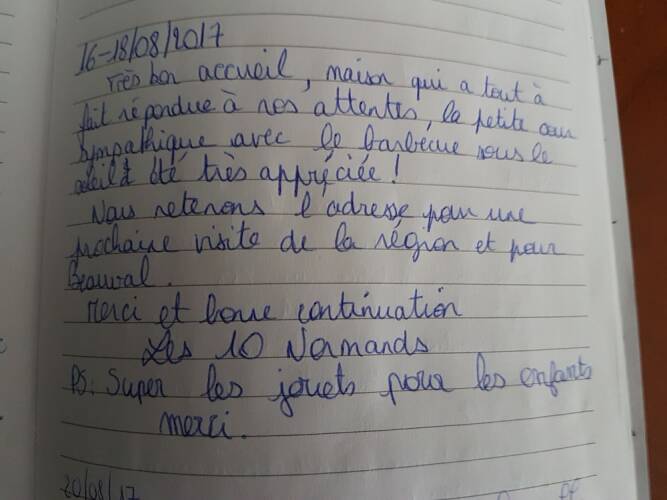 16-18/08/2017
Très bon accueil, maison qui a tout à
fait répondue à nos attentes, la petite cour
sympathique avec le barbecue sous le
soleil a été très appréciée !
Nous retenons l'adresse pour une
prochaine visite de la région et pour
Beauval.
Merci et bonne continuation
Les 10 Normands
PS: Super les jouets pour les enfants
merci.
20/08/17